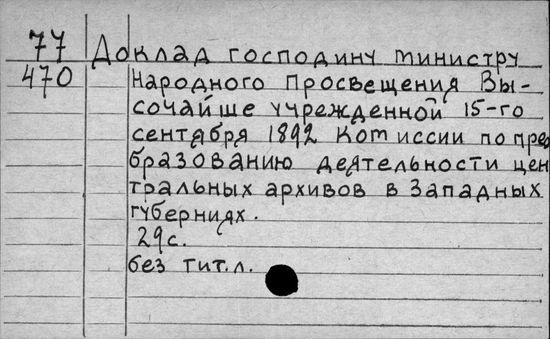 77 Доклад господину министру
470 Народного Просвещения Вы-
сочайше учрежденной 15-го
сентября 1892 Комиссии по пре
бразованию деятельности цен
тральных архивов в Западных
губерниях.
29с.
без тит.л.